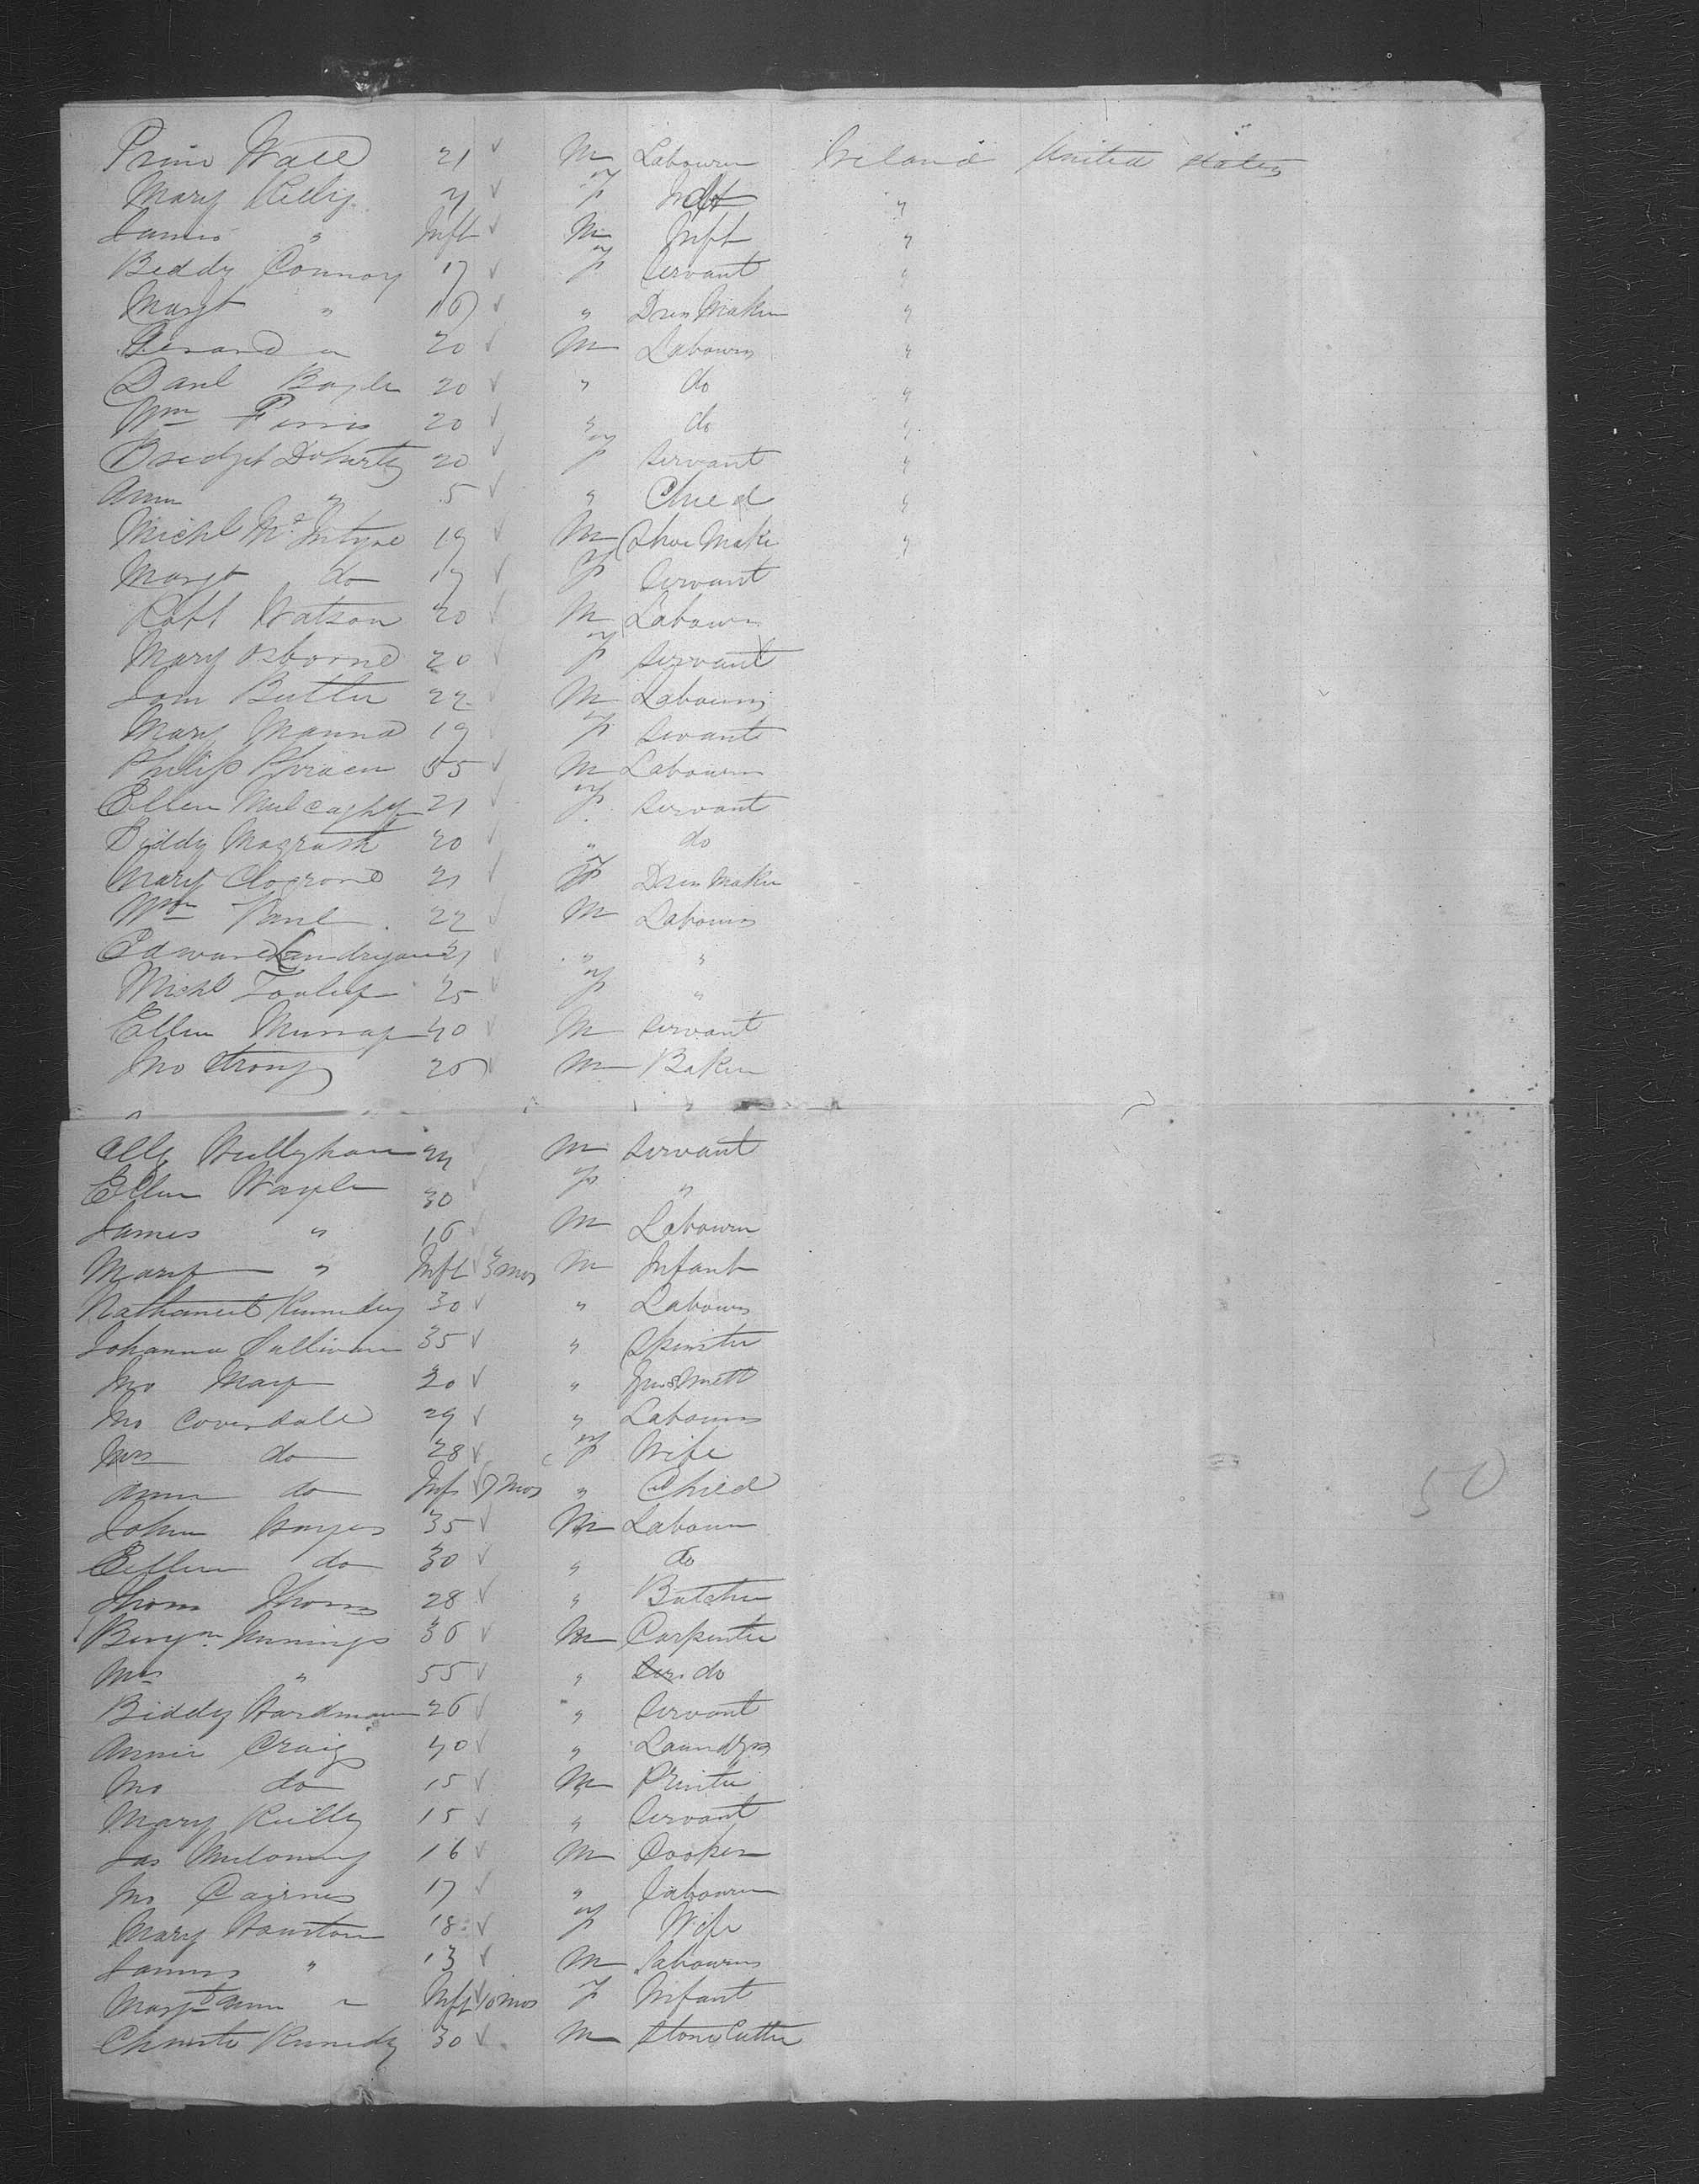 Wall 21 ✓ M Labourer Ireland United States
Mary Reilly ✓ F "
James " Inft ✓ M Inft "
Biddy Connory 17 ✓ F Servant "
Margt " 16 ✓ " Dress Maker "
" 20 ✓ M Labourer "
Danl Boyle 20 ✓ " do "
Wm Ferris 20 ✓ " do "
Bridget Doherty 20 ✓ F Servant "
Ann " 5 ✓ " Child "
Michl McIntyre 19 ✓ M Shoe Make "
Margt do 17 ✓ F Servant
Robt Watson 20 ✓ M Labourer
Mary Osborne 20 ✓ F Servant
Butler 22 ✓ M Labourer
Mary 19 ✓ F Servant
Philip 55 ✓ M Labourer
Ellen Mulcaghy 21 ✓ F Servant
Biddy Magrath 20 ✓ " do
Mary 21 ✓ F Dress Maker
Wm 22 ✓ M Labourer
Edward Landrgan 21 ✓ " "
Michl 25 ✓ F "
Ellen Murray 40 ✓ M Servant
Jno Strong 26 ✓ M Baker
M Servant
Ellen 30 ✓ F "
James " 16 ✓ M Labourer
Mary " Inft ✓ 3 mos M Infant
Nathaniel Kennedy 30 ✓ " Labourer
Johanna Sullivan 35 ✓ " Spinster
Jno May 20 ✓ "
Jno Coverdale 29 ✓ " Labourer
Mrs do 28 ✓ F Wife
Ann do Inf ✓ 7 mos " Child
John Hayes 35 ✓ M Labourer
Ellen do 30 ✓ " do
Thom Thoms 28 ✓ " Butcher
Benjn 36 ✓ M Carpenter
Mrs " 55 ✓ " do
Biddy Hardman 26 ✓ " Servant
Annie Craig 40 ✓ " Laundrys
Jno do 15 ✓ M Printer
Mary Reilly 15 ✓ " Servant
Jas 16 ✓ M Cooper
Jno Cairnes 17 ✓ " Labourer
Mary Houston 18 ✓ F Wife
James " 13 ✓ M Labourer
Margt Ann " Inft ✓ 10 mos F Infant
Kennedy 30 ✓ M Stone Cutter
50